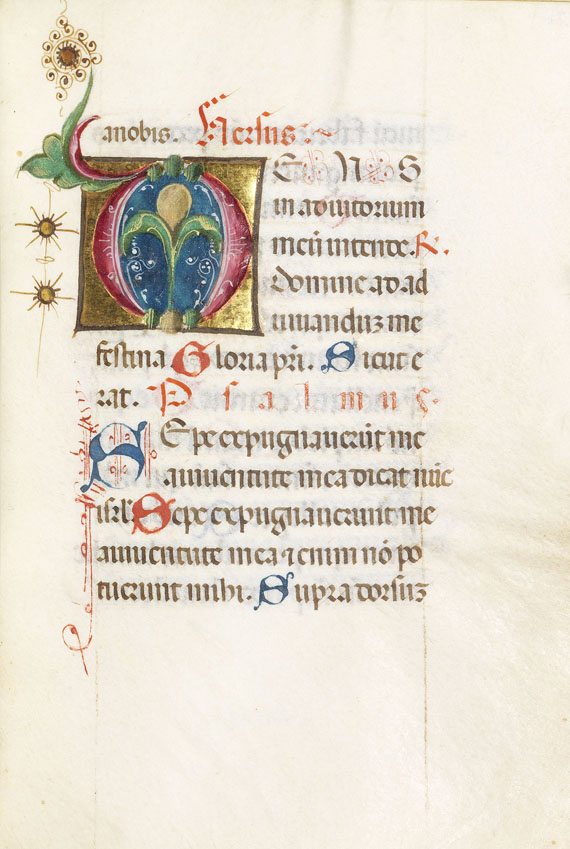 a nobis. Versus:~
DEUS
in adiutorium
meū intende. R.
Domine ad ad
iuuanduz me
festina Gloria pri. Sicut e
rat. Psalmus.
Sepe expugnauerūt me
a iuuentute mea dicat nūc
isrl. Sepe expugnauerunt me
a iuuentute mea ⁊ enim nō po
tuerunt mihi. Supra dorsuz